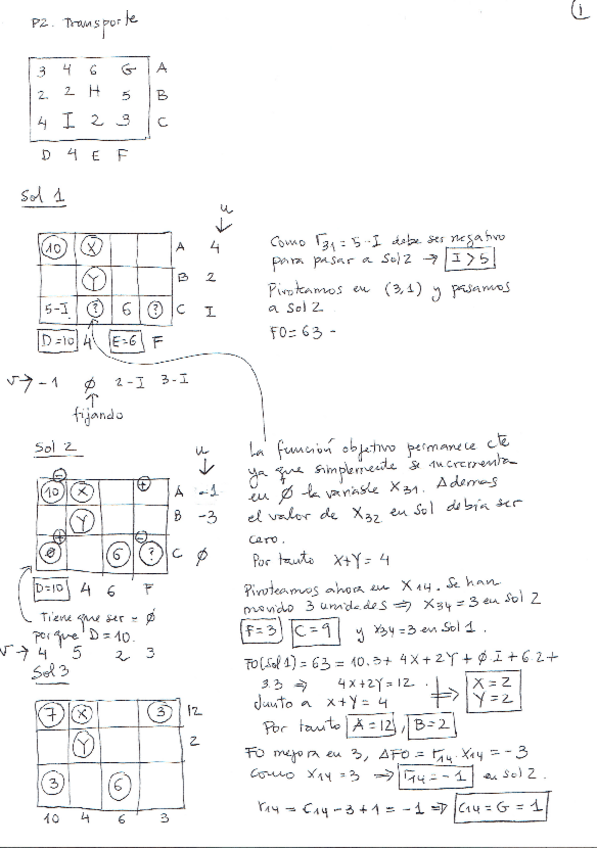 1
P2. Transporte
3 4 6 G A
2 2 H 5 B
4 I 2 3 C
D 4 E F
Sol 1
u
10 X A 4
Y B 2
5-I ? 6 ? C I
D=10 4 E=6 F
v → -1 ø 2-I 3-I
fijando
Como r31 = 5-I debe ser negativo
para pasar a Sol 2 → I > 5
Pivoteamos en (3,1) y pasamos
a Sol 2.
FO = 63 -
Sol 2
u
- +
10 X A -1
Y B -3
+ -
ø 6 ? C ø
D=10 4 6 F
Tiene que ser = ø
porque D = 10.
v → 4 5 2 3
La función objetivo permanece cte
ya que simplemente se incrementa
en ø la variable X31. Ademas
el valor de X32 en Sol debía ser
cero.
Por tanto X+Y = 4
Pivoteamos ahora en X14. Se han
movido 3 unidades ⇒ X34 = 3 en Sol 2
F=3 C=9 y X34 = 3 en Sol 1.
FO(Sol 1) = 63 = 10.3 + 4X + 2Y + ø.I + 6.2 +
3.3 ⇒ 4X+2Y = 12.
Junto a X+Y = 4 ⇒ X=2 Y=2
Por tanto A=12, B=2
FO mejora en 3, ΔFO = r14 · X14 = -3
como X14 = 3 ⇒ r14 = -1 en Sol 2.
r14 = C14 - 3 + 1 = -1 ⇒ C14 = G = 1
Sol 3
7 X 3 12
Y 2
3 6
10 4 6 3